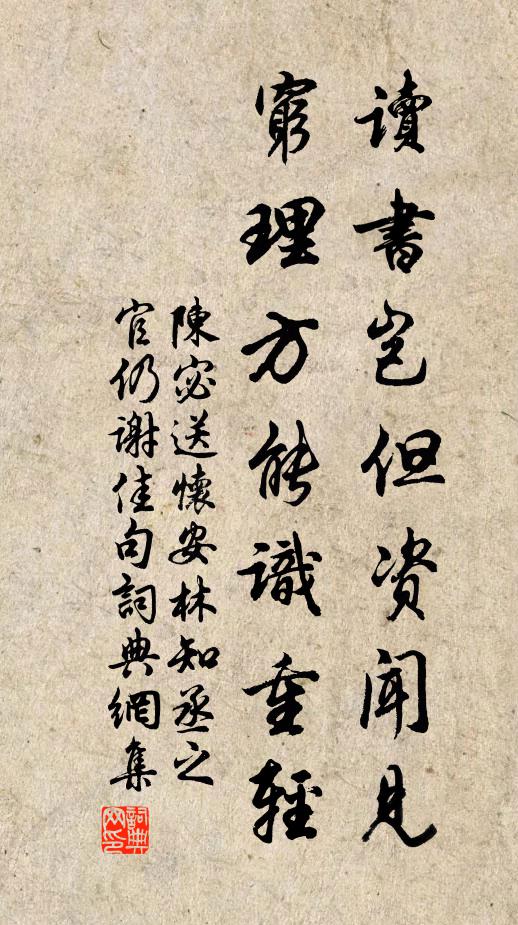 讀書豈但資聞見
窮理方能識重輕
陳宓送懷安林知丞之
官仍謝佳句詞典網集
詞典网印